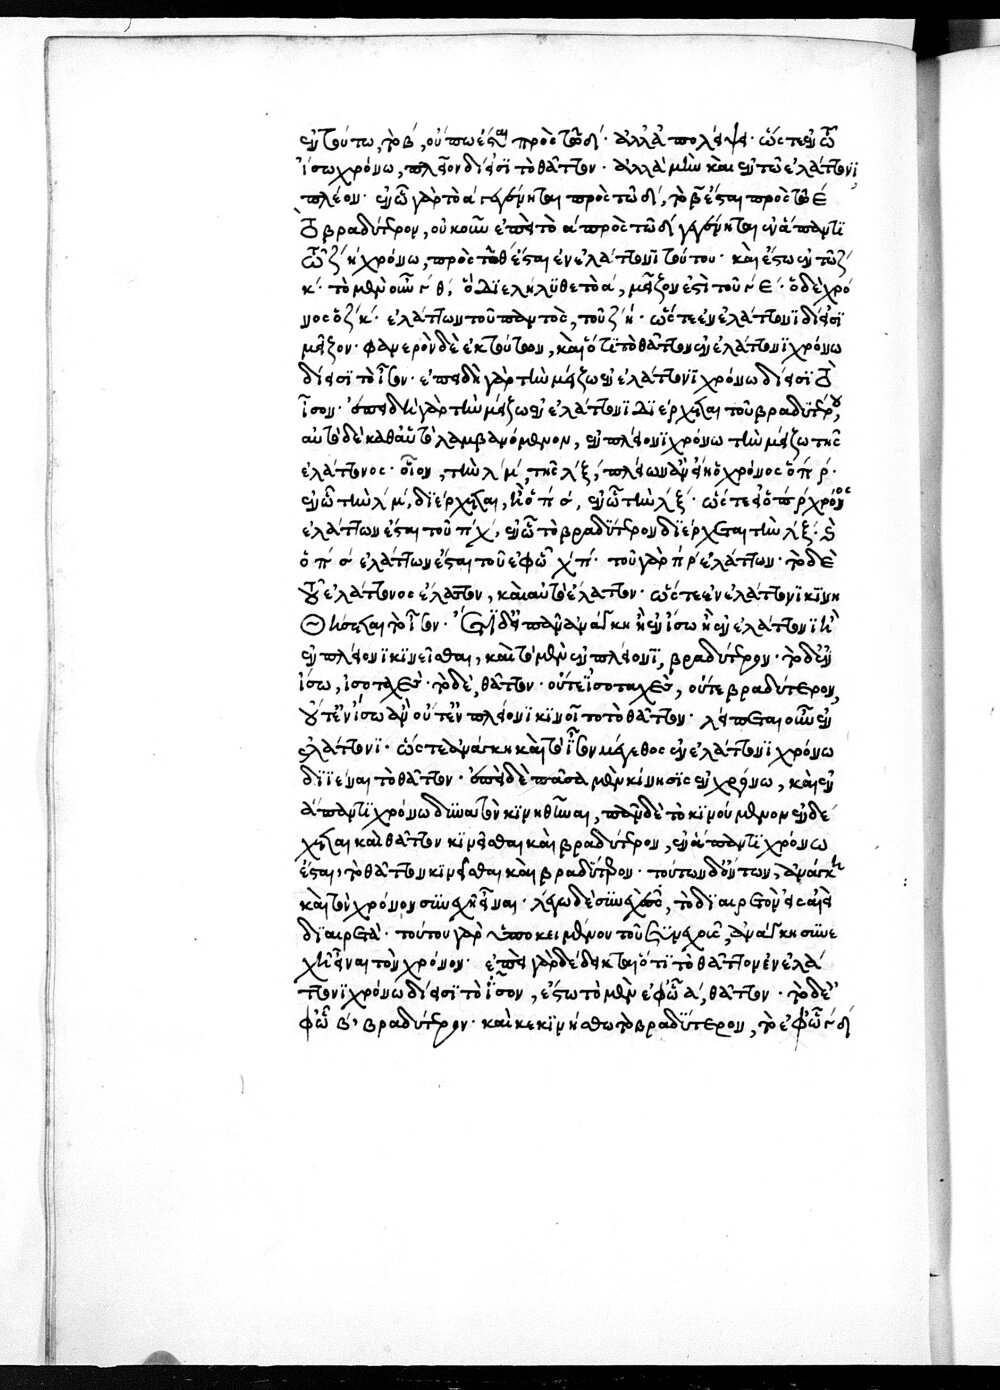 ἐν τούτω, τὸ β, οὔπω ἔσται πρὸς τῶ δ· ἀλλὰ ἀπολείψει· ὥστε ἐν ὧ
ἴσω χρόνω, πλεῖον δίεισι τὸ θᾶττον· ἀλλὰ μὴν καὶ ἐν τῶ ἐλάττονι,
πλέον· ἐν ὧ γὰρ τὸ α γεγένηται πρὸς τῶ δ, τὸ β ἔσται πρὸς τῶ ε
τὸ βραδύτερον, οὐκοῦν ἐπεὶ τὸ α πρὸς τῶ δ γεγένηται ἐν ἅπαντι
τῶ ζη χρόνω, πρὸς τῶ θ ἔσται ἐν ἐλάττονι τούτου· καὶ ἔστω ἐν τῶ ζ
κ· τὸ μὲν οὖν γ θ, ὃ διελήλυθε τὸ α, μεῖζον ἐστὶ τοῦ γ ε· ὁ δὲ χρό
νος ὁ ζ κ· ἐλάττων τοῦ παντὸς, τοῦ ζ η· ὥστε ἐν ἐλάττονι δίεισι
μεῖζον· φανερὸν δὲ ἐκ τούτων, καὶ ὅτι τὸ θᾶττον ἐν ἐλάττονι χρόνω
δίεισι τὸ ἴσον· ἐπειδὴ γὰρ τὴν μείζω ἐν ἐλάττονι χρόνω δίεισι τὸ
ἴσον· ἐπειδὴ γὰρ τὴν μείζω ἐν ἐλάττονι διέρχεται τοῦ βραδυτέρου,
αὐτὸ δὲ καθ' αὑτὸ λαμβανόμενον, ἐν πλείονι χρόνω τὴν μείζω τῆς
ἐλάττονος· οἷον, τὴν λ μ, τῆς λ ξ, πλείων ἂν εἴη ὁ χρόνος ὁ π ρ·
ἐν ὧ τὴν λ μ, διέρχεται, ἢ ὁ π σ, ἐν ὧ τὴν λ ξ· ὥστε εἰ ὁ π ρ χρόνος
ἐλάττων ἔσται τοῦ π χ, ἐν ὧ τὸ βραδύτερον διέρχεται τὴν λ ξ· καὶ
ὁ π σ ἐλάττων ἔσται τοῦ ἐφ' ὧ χ π· τοῦ γὰρ π ρ ἐλάττων· τὸ δὲ
τοῦ ἐλάττονος ἔλαττον, καὶ αὐτὸ ἔλαττον· ὥστε ἐν ἐλάττονι κινη
θήσεται τὸ ἴσον· Ἔτι δ' εἰ πᾶν ἀνάγκη ἢ ἐν ἴσω ἢ ἐν ἐλάττονι ἢ
ἐν πλείονι κινεῖσθαι, καὶ τὸ μὲν ἐν πλείονι, βραδύτερον· τὸ δ' ἐν
ἴσω, ἰσοταχές· τὸ δὲ, θᾶττον· οὔτε ἰσοταχὲς, οὔτε βραδύτερον,
οὔτ' ἐν ἴσω ἂν οὔτ' ἐν πλείονι κινοῖτο τὸ θᾶττον· λείπεται οὖν ἐν
ἐλάττονι· ὥστε ἀνάγκη καὶ τὸ ἴσον μέγεθος ἐν ἐλάττονι χρόνω
διϊέναι τὸ θᾶττον· ἐπεὶ δὲ πᾶσα μὲν κίνησις ἐν χρόνω, καὶ ἐν
ἅπαντι χρόνω δυνατὸν κινηθῆναι, πᾶν δὲ τὸ κινούμενον ἐνδέ
χεται καὶ θᾶττον κινεῖσθαι καὶ βραδύτερον, ἐν ἅπαντι χρόνω
ἔσται, τὸ θᾶττον κινεῖσθαι καὶ βραδύτερον· τούτων δ' ὄντων, ἀνάγκη
καὶ τὸν χρόνον συνεχῆ εἶναι· λέγω δὲ συνεχὲς, τὸ διαιρετὸν εἰς ἀεὶ
διαιρετά· τούτου γὰρ ὑποκειμένου τοῦ συνεχοῦς, ἀνάγκη συνε
χῆ εἶναι τὸν χρόνον· ἐπεὶ γὰρ δέδεικται ὅτι τὸ θᾶττον ἐν ἐλά
ττονι χρόνω δίεισι τὸ ἴσον, ἔστω τὸ μὲν ἐφ' ὧ α, θᾶττον· τὸ δ' ἐ
φ' ὧ β· βραδύτερον· καὶ κεκινήσθω τὸ βραδύτερον, τὸ ἐφ' ὧ γ δ